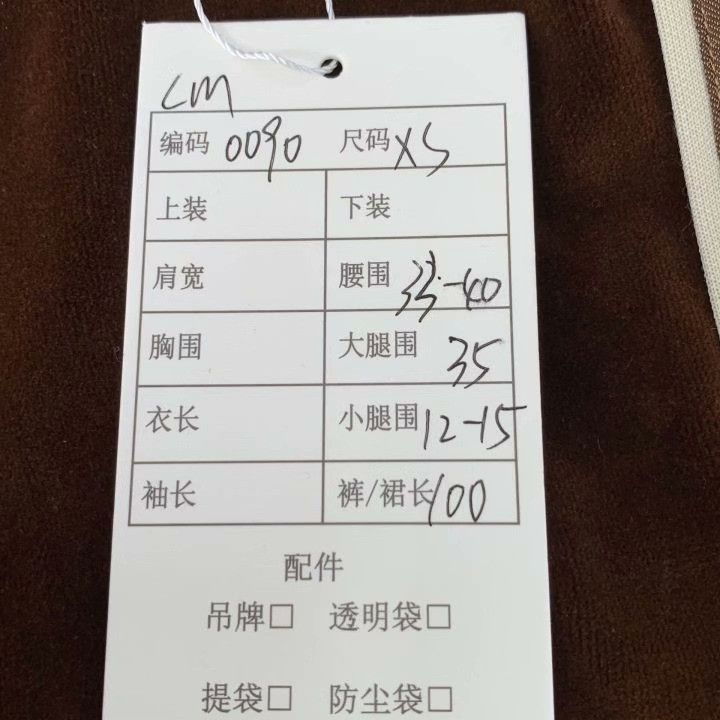 CM
编码 0090 尺码 XS
上装 下装
肩宽 腰围 33-40
胸围 大腿围 35
衣长 小腿围 12-15
袖长 裤/裙长 100
配件
吊牌□ 透明袋□
提袋□ 防尘袋□